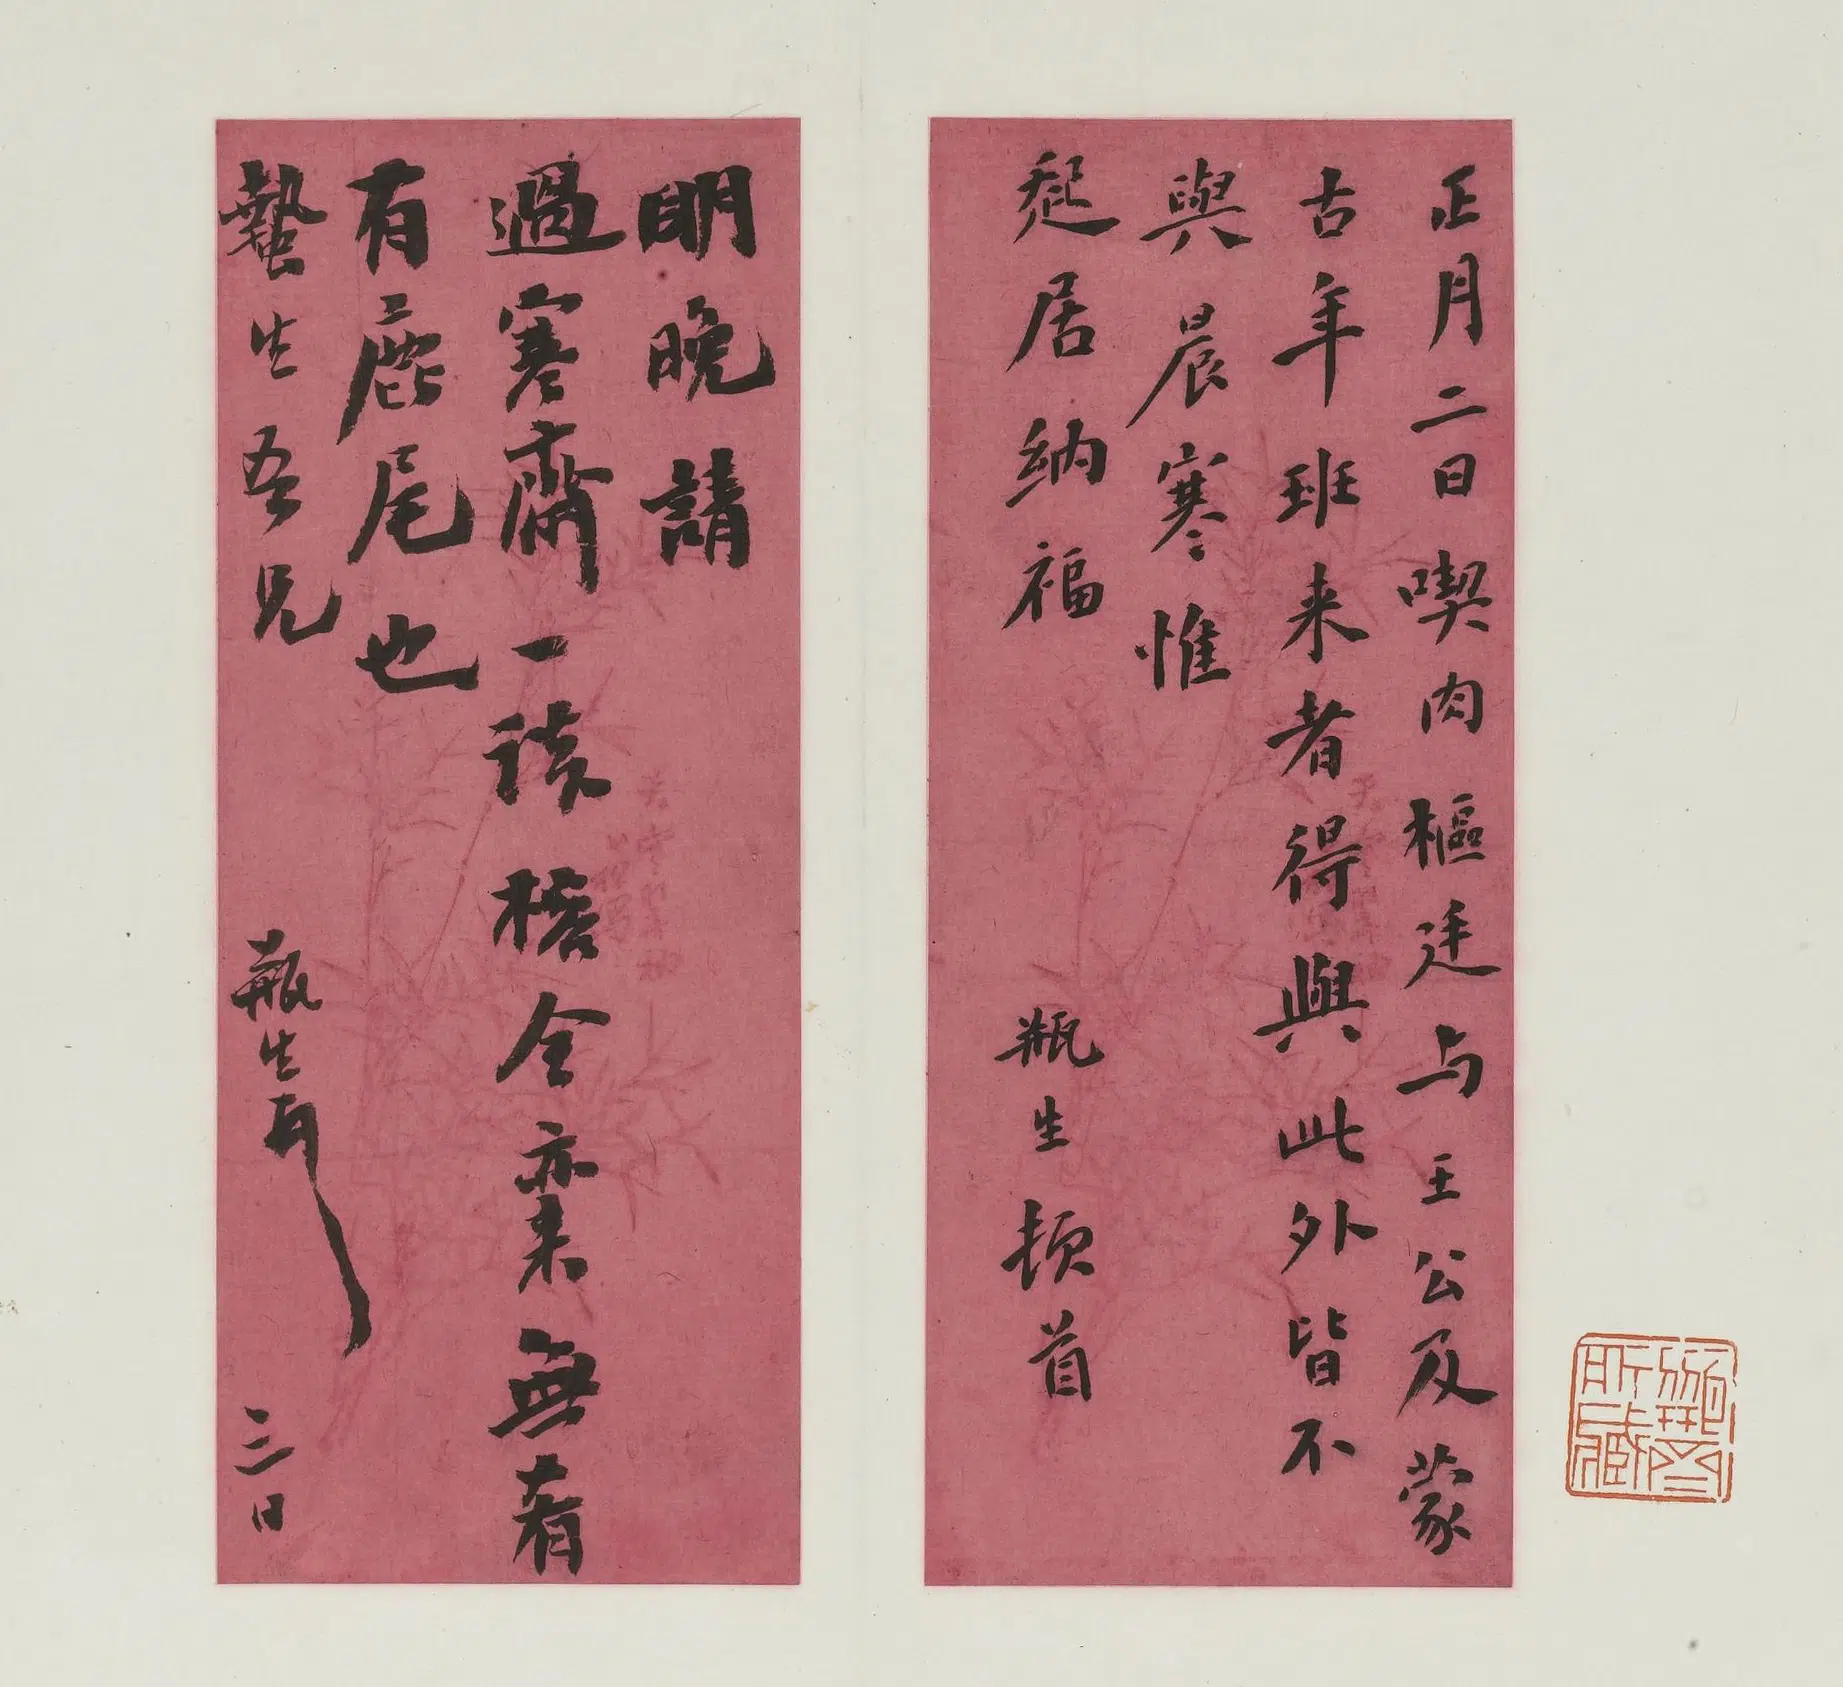 正月二日喫肉樞廷与王公及蒙
古年班来者得與此外皆不
與晨寒惟
起居納福
瓶生頓首
明晚請
過寒齋一談檐令亦来無肴
有鹿尾也
蟄生吾兄
瓶生頓
三日